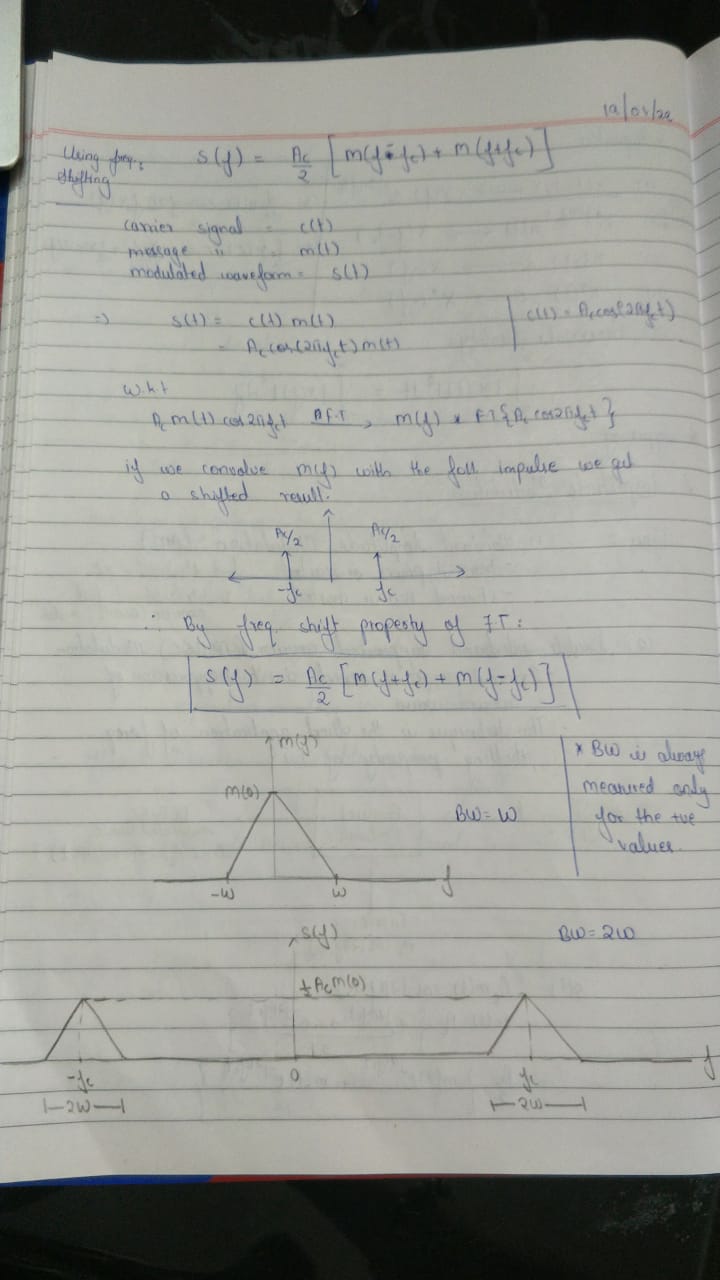 19/01/22
Using freq: S(f) = Ac/2 [M(f-fc) + M(f+fc)]
shifting
carrier signal = c(t)
message " = m(t)
modulated waveform = s(t)
=> s(t) = c(t) m(t) | c(t) = Ac cos(2πfct)
= Ac cos(2πfct) m(t)
W.k.t
Ac m(t) cos2πfct F.T → M(f) * FT{Ac cos2πfct}
if we convolve M(f) with the foll. impulse we get
a shifted result.
Ac/2 Ac/2
-fc fc
∴ By freq. shift property of F.T:
S(f) = Ac/2 [M(f+fc) + M(f-fc)]
M(f)
* BW is always
measured only
for the +ve
values.
M(0)
BW = W
-W W f
S(f)
BW = 2W
½ Ac M(0)
-fc 0 fc f
|-2W-| |-2W-|